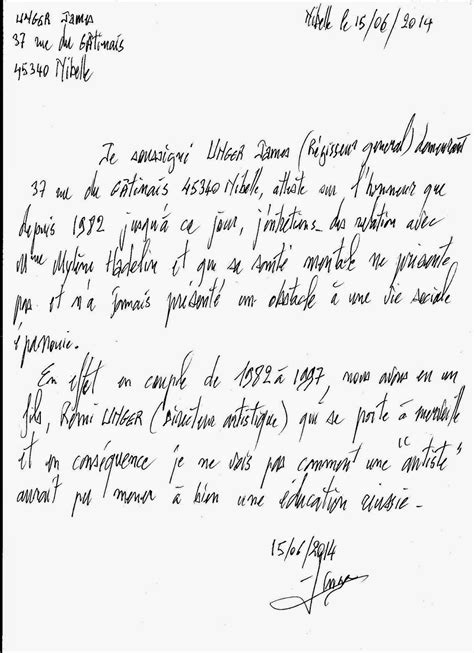 UNGER James
37 rue du Gâtinais
45340 Nibelle
Nibelle le 15/06/2014
Je soussigné UNGER James (Régisseur general) demeurant
37 rue du Gâtinais 45340 Nibelle, atteste sur l'honneur que
depuis 1982 jusqu'à ce jour, j'entretiens des relation avec
Mme Mylène Hadelin et que sa santé mentale ne présente
pas et n'a jamais présenté un obstacle à une vie sociale
épanouie.
En effet en couple de 1982 à 1997, nous avons eu un
fils, Rémi UNGER (Directeur artistique) qui se porte à merveille
et en conséquence je ne vois pas comment une "autiste"
aurait pu mener à bien une éducation réussie.
15/06/2014